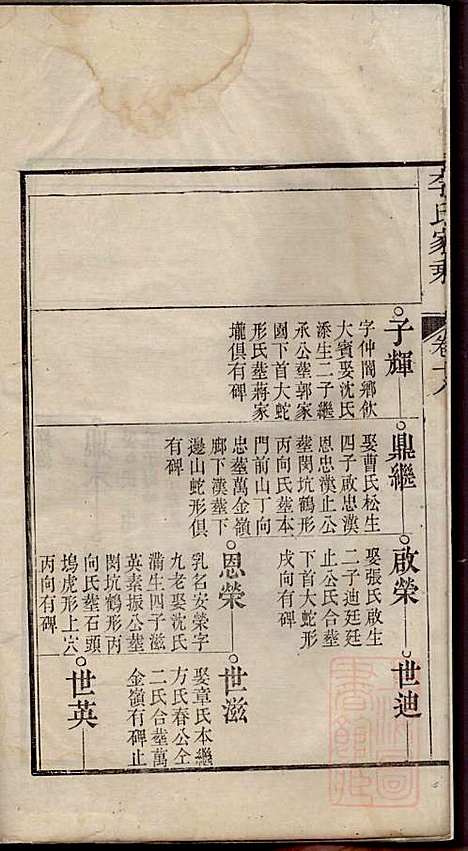 李氏家乘
卷十八
子輝
字仲閣鄉飲
大賓娶沈氏
添生二子繼
承公塟郭家
園下首大蛇
形氏塟蔣家
壠俱有碑
鼎繼
娶曹氏松生
四子啟忠漢
恩忠漢止公
塟閔坑鶴形
丙向氏塟本
門前山丁向
忠塟萬金嶺
廊下漢塟下
邊山蛇形俱
有碑
啟榮
娶張氏啟生
二子迪廷廷
止公氏合塟
下首大蛇形
戌向有碑
世迪
恩榮
乳名安榮字
九老娶沈氏
滿生四子滋
英素振公塟
閔坑鶴形丙
向氏塟石頭
塢虎形上穴
丙向有碑
世滋
娶章氏本繼
方氏春公仝
二氏合塟萬
金嶺有碑止
世英